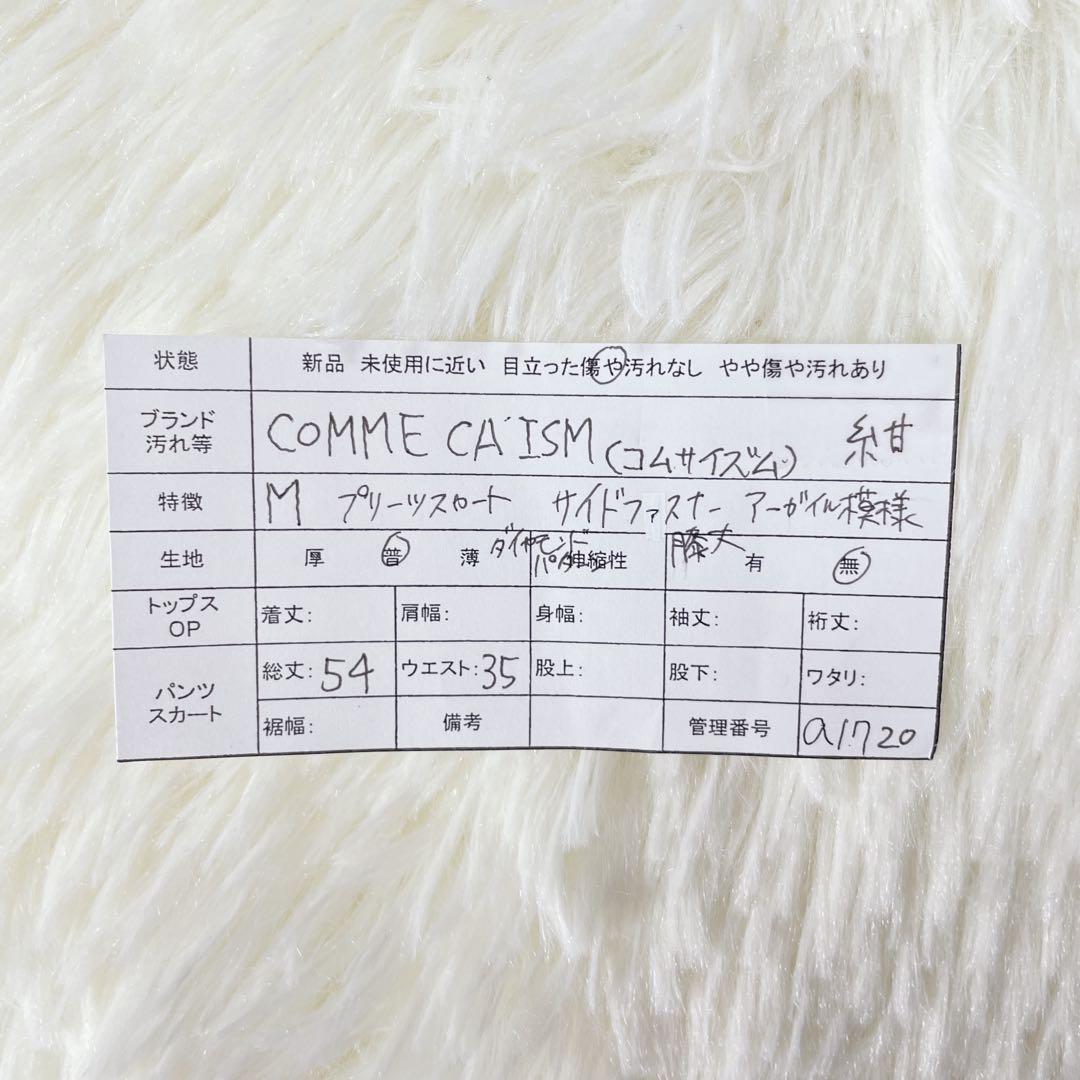 状態 新品 未使用に近い 目立った傷や汚れなし やや傷や汚れあり
ブランド
汚れ等 COMME CA'ISM (コムサイズム) 紺
特徴 M プリーツスカート サイドファスナー アーガイル模様
ダイヤモンド
パターン
膝丈
生地 厚 普 薄 伸縮性 有 無
トップス
OP 着丈: 肩幅: 身幅: 袖丈: 裄丈:
パンツ
スカート 総丈: 54 ウエスト: 35 股上: 股下: ワタリ:
裾幅: 備考 管理番号 a1720